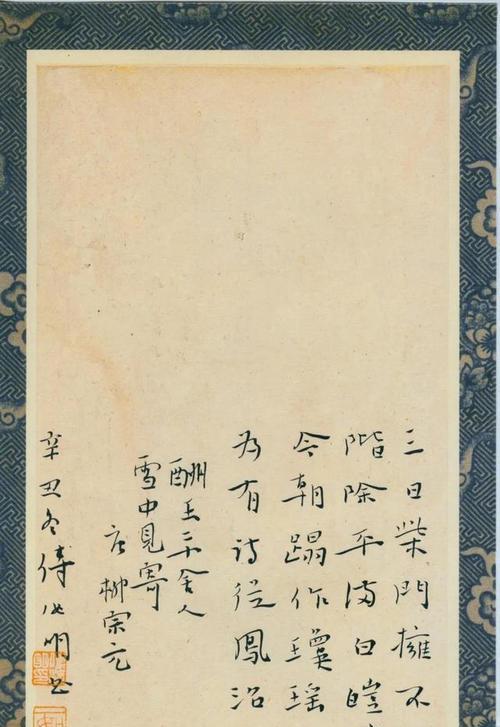 三日柴門擁不
階除平滿白皚
今朝蹋作瓊瑶
為有詩從鳳沼
酬王二十舍人
雪中見寄
唐柳宗元
辛丑冬明書